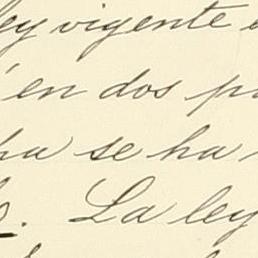 ley vigente
en dos
se ha
La ley